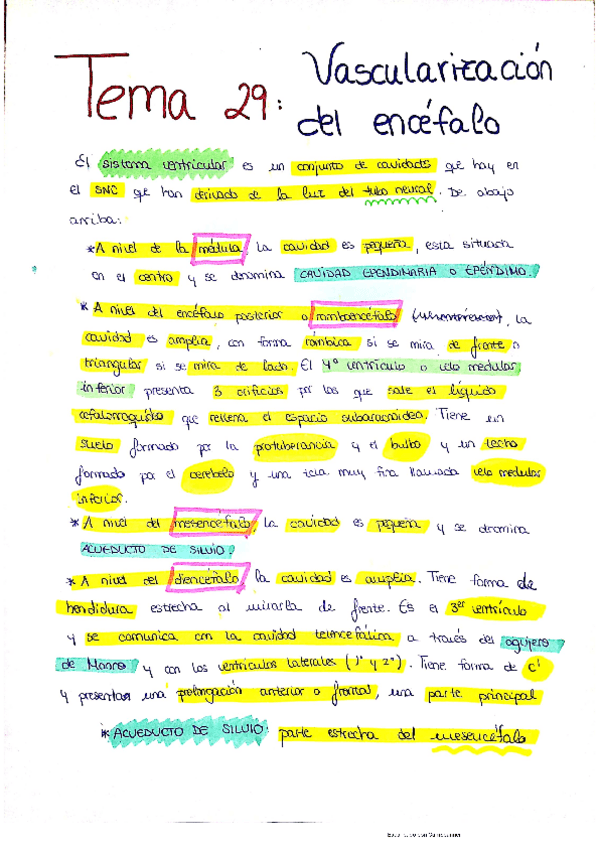 Tema 29: Vascularización
del encéfalo
El sistema ventricular es un conjunto de cavidades que hay en
el SNC que han derivado de la luz del tubo neural. De abajo
arriba:
*A nivel de la médula la cavidad es pequeña, esta situada
en el centro y se denomina CAVIDAD EPENDINARIA o EPÉNDIMO.
* A nivel del encéfalo posterior o romboencéfalo la
cavidad es amplia, con forma rómbica si se mira de frente o
triangular si se mira de lado. El 4º ventrículo o velo medular
inferior presenta 3 orificios por los que sale el líquido
cefalorraquídeo que rellena el espacio subaracnoidea. Tiene un
suelo formado por la protuberancia y el bulbo y un techo
formado por el cerebelo y una tela muy fina llamada velo medular
inferior.
* A nivel del mesencéfalo, la cavidad es pequeña y se denomina
ACUEDUCTO DE SILVIO.
* A nivel del diencéfalo la cavidad es amplia. Tiene forma de
hendidura estrecha al mirarla de frente. Es el 3er ventrículo
y se comunica con la cavidad telencefálica a través del agujero
de Monro y con los ventrículos laterales (1º y 2º). Tiene forma de C
y presentan una prolongación anterior o frontal, una parte principal
*ACUEDUCTO DE SILVIO: parte estrecha del mesencéfalo